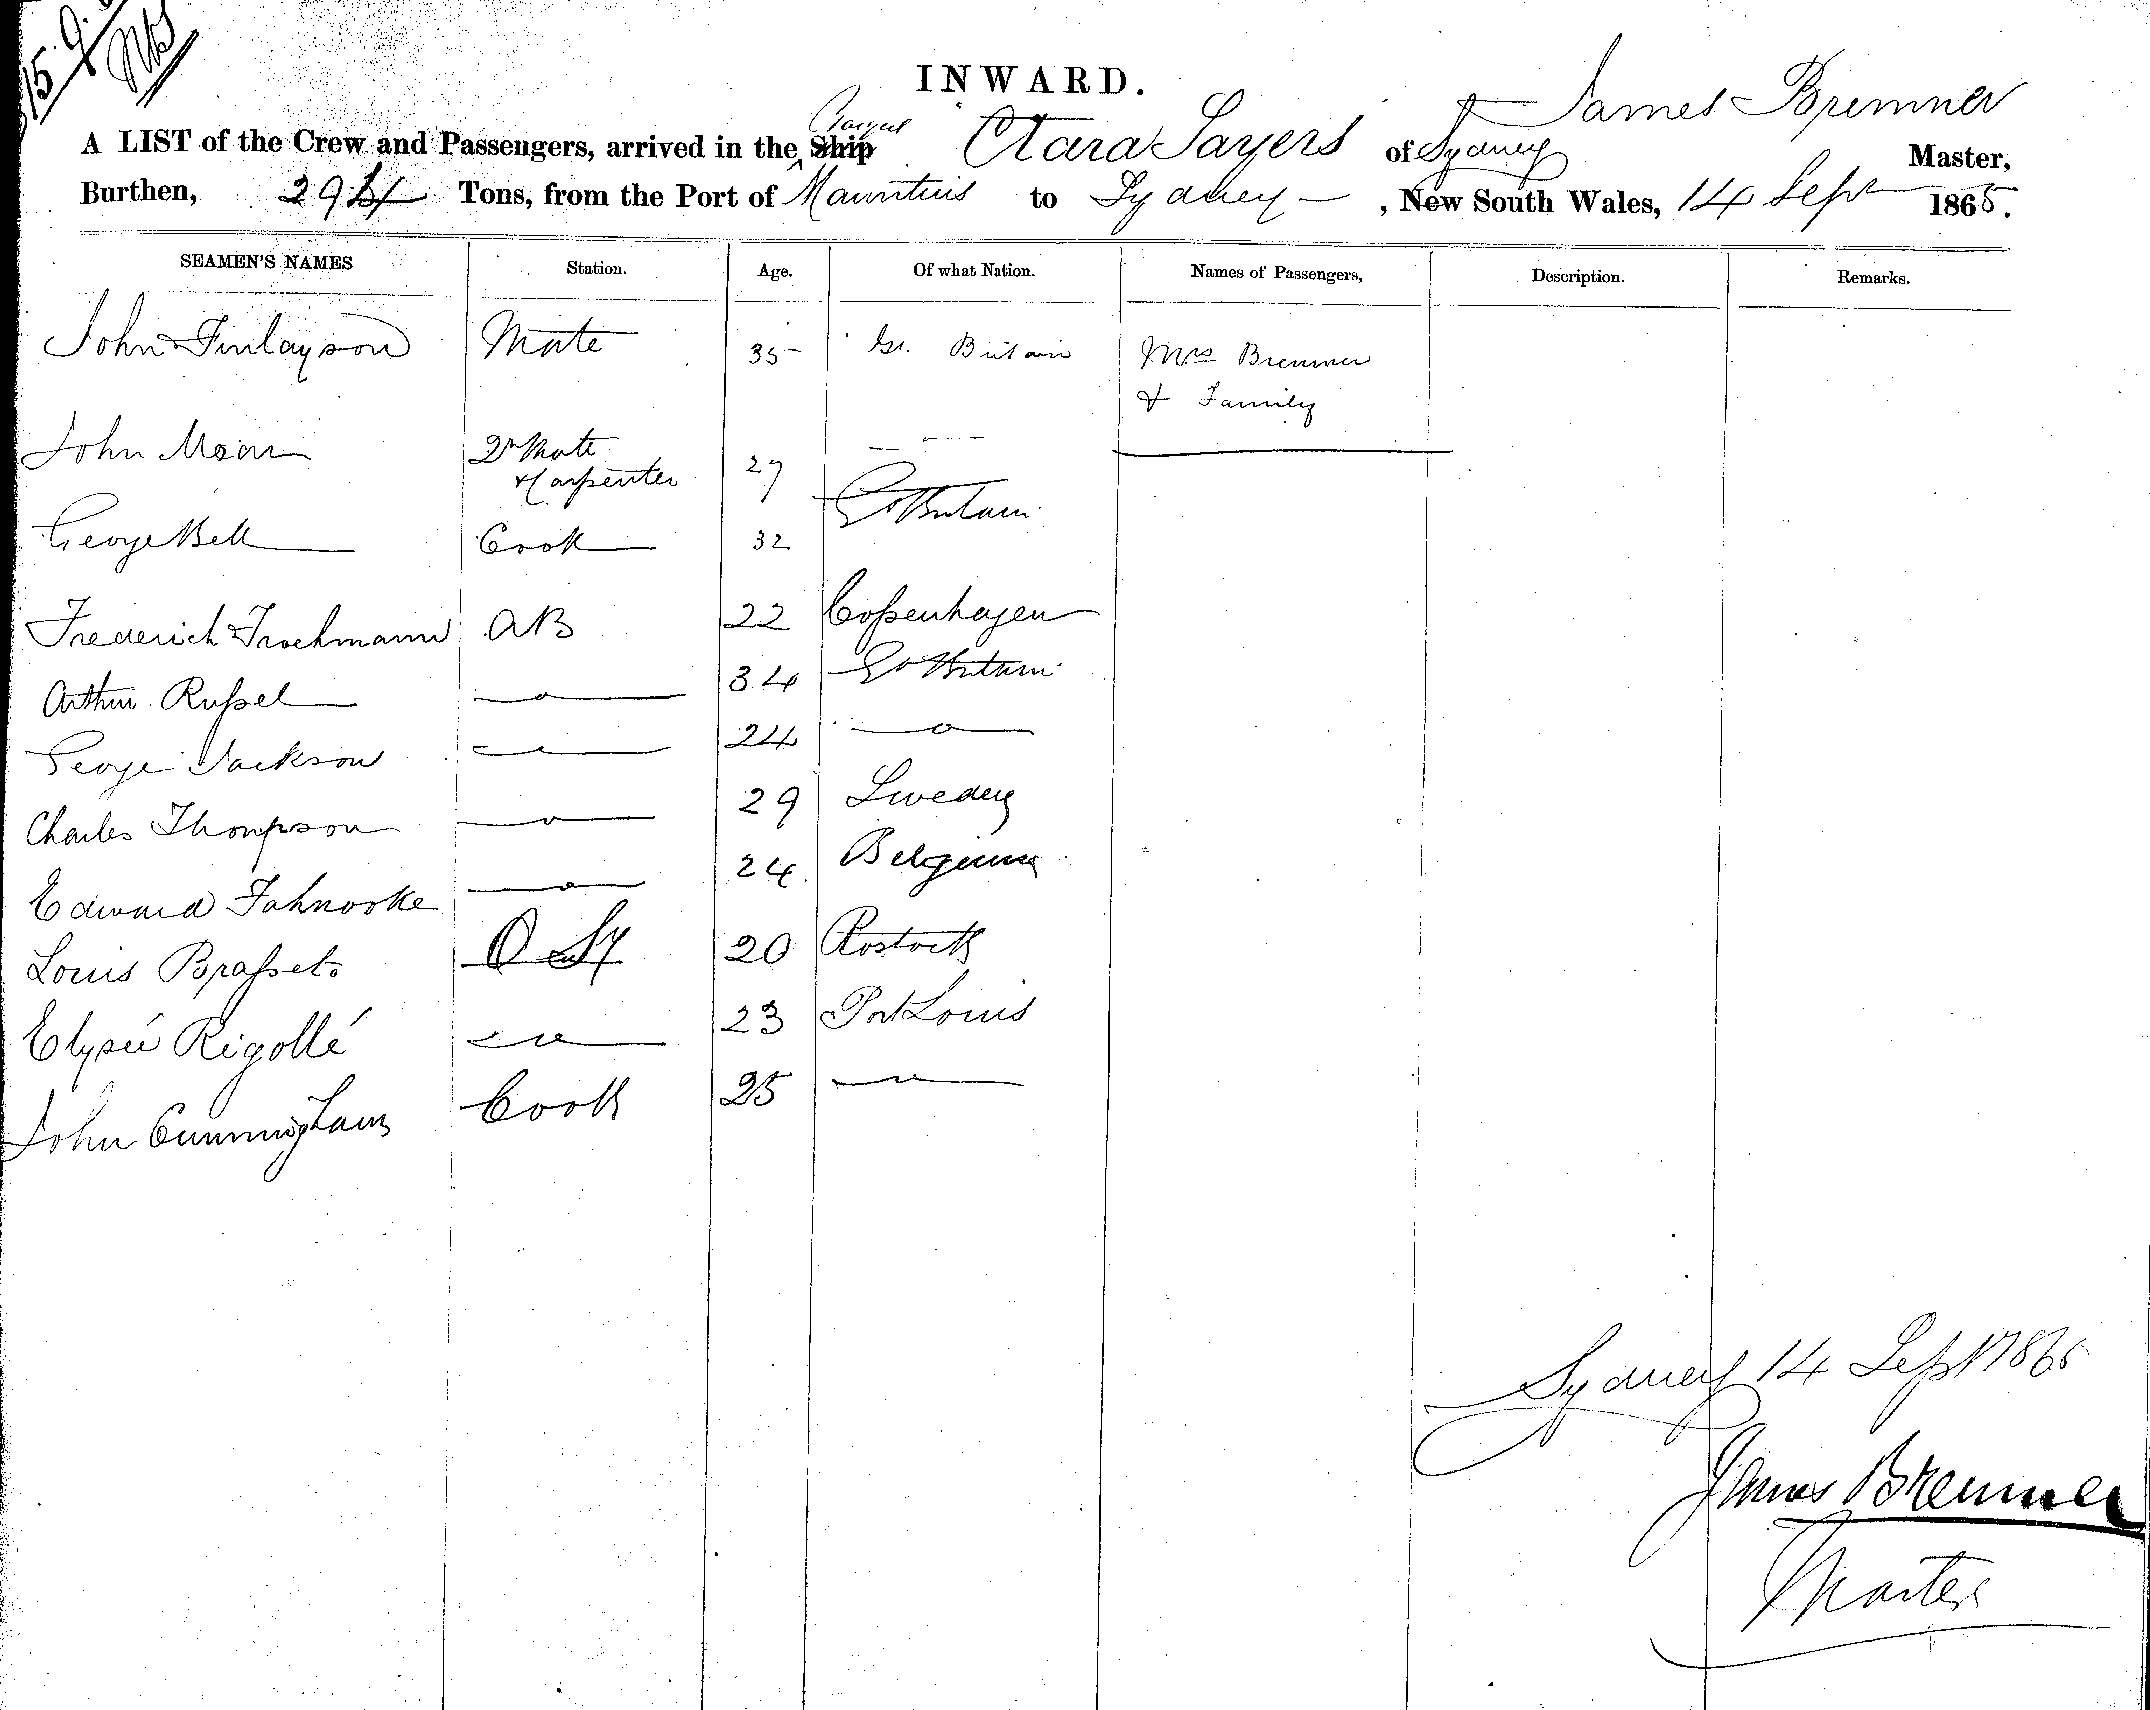 INWARD.
James Bremner
A LIST of the Crew and Passengers, arrived in the Ship Clara Sayers of Sydney Master,
Burthen, 294 Tons, from the Port of Mauritius to Sydney , New South Wales, 14 Sept 1865.
SEAMEN'S NAMES Station. Age. Of what Nation. Names of Passengers, Description. Remarks.
John Finlayson Mate 35 Gr. Britain Mrs Bremner
& Family
John 2d Mate
& Carpenter 27
George Bell Cook 32 Gt Britain
Frederich AB 22 Copenhagen
Arthur Russel 34 Gt Britain
George Jackson 24
Charles Thompson 29 Sweden
Edward 24 Belgium
Louis O Sn 20 Rostock
Elyseé Rigollé 23 Port Louis
John Cunningham Cook 25
Sydney 14 Sept 1865
James Bremner
Master